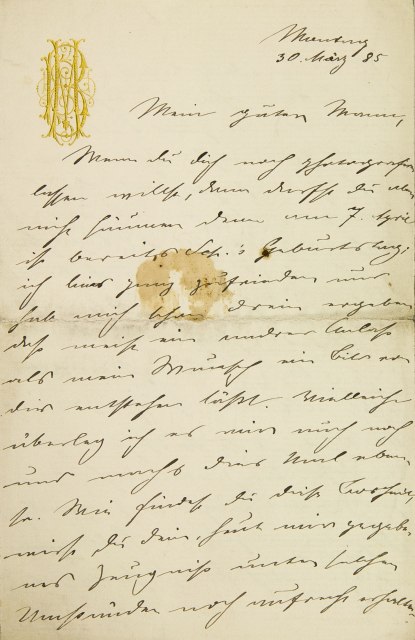 Montag
30. März 85
Mein guter Mann,
Wenn du dich noch photografiren
lassen willst, dann darfst du aber
nicht säumen denn am 7. April
ist bereits Sch.'s Geburtstag;
ich bins ganz zufrieden und
hab mich schon drein ergeben
daß meist ein andrer Anlaß
als mein Wunsch ein Bild von
dir entstehen läßt. Vielleicht
überleg ich es mir auch noch
und machs dies Mal eben
so. Wie findest du diese Bosheit,
wirst du dein, heut mir gegebe-
nes Zeugniß unter solchen
Umständen noch aufrecht erhalten